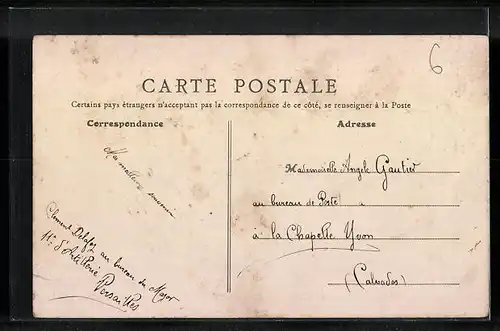 6
CARTE POSTALE
Certains pays étrangers n'acceptant pas la correspondance de ce côté, se renseigner à la Poste
Correspondance
Adresse
meilleur souvenir
Clément au bureau du Major
11e d'Artillerie
Versailles
Mademoiselle Angèle Gautier
au bureau de Poste
à la Chapelle Yvon
(Calvados)